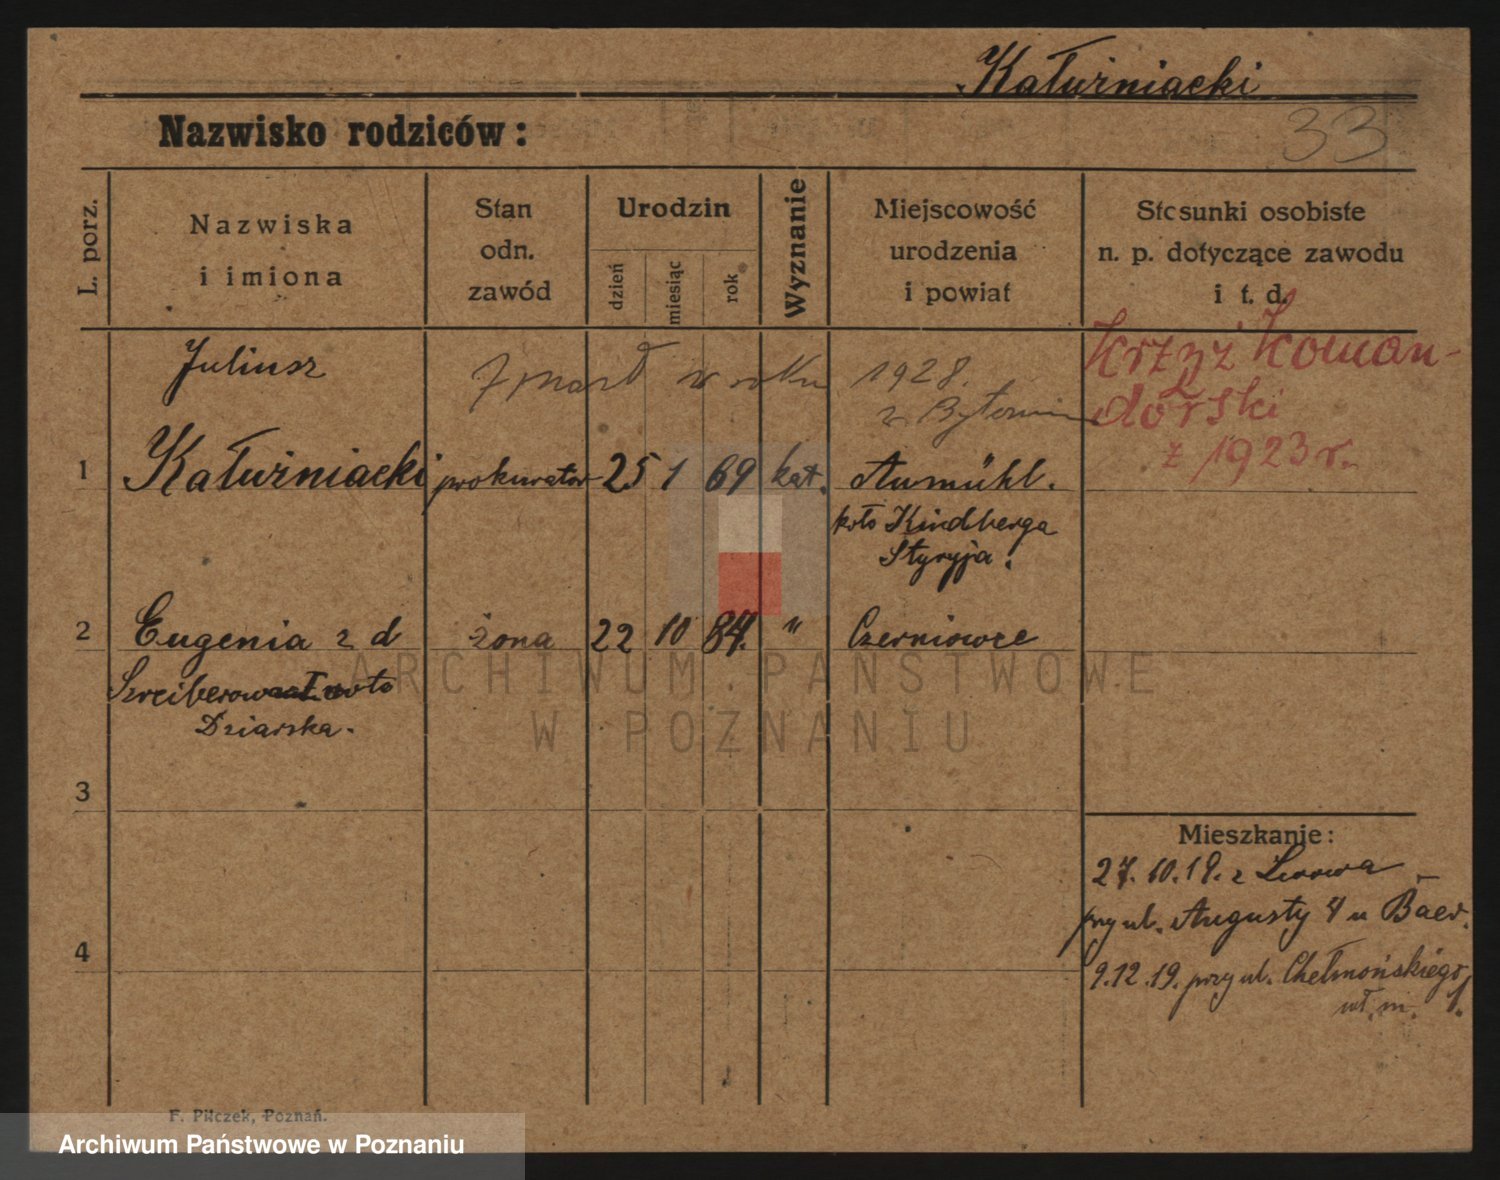 Kałużniacki
Nazwisko rodziców:
33
L. porz.
Nazwiska
i imiona
Stan
odn.
zawód
Urodzin
dzień
miesiąc
rok
Wyznanie
Miejscowość
urodzenia
i powiat
Stosunki osobiste
n. p. dotyczące zawodu
i t. d.
Juliusz
Zmarł w roku 1928.
w Bytomiu
Krzyż Koman-
dorski
z 1923 r.
1 Kałużniacki prokurator 25 1 69 kat. Aumühl.
koło Kindberga
Styryja.
2 Eugenia z d żona 22 10 84. " Czerniowce
Szreiberow voto
Dziarska.
3
4
Mieszkanie:
27.10.19. z Lwowa
przy ul. Augusty 4 u Baer.
9.12.19. przy ul. Chełmońskiego
wł. m. 1.
ARCHIWUM PAŃSTWOWE
W POZNANIU
F. Pilczek, Poznań.
Archiwum Państwowe w Poznaniu